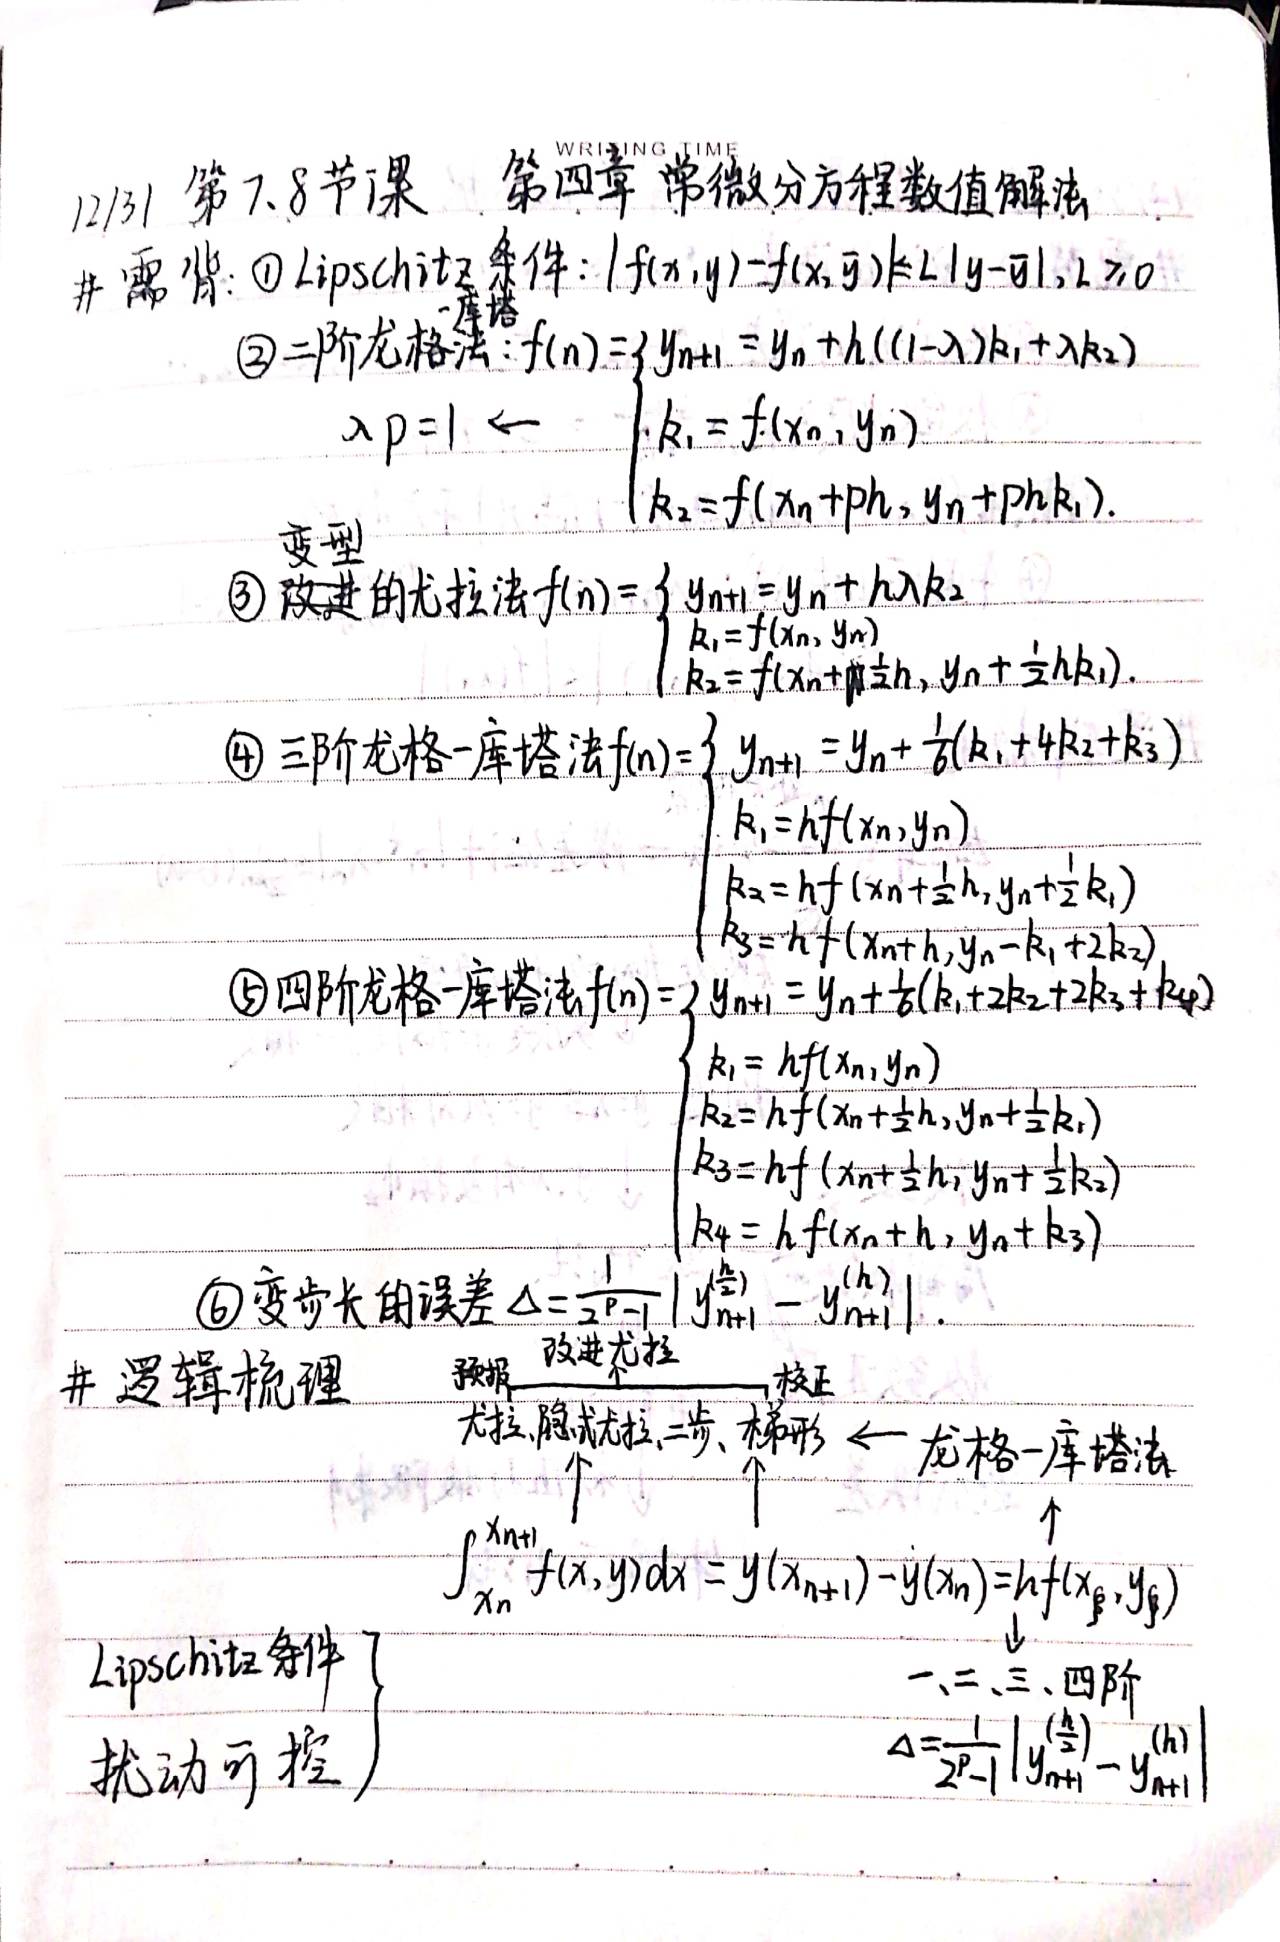 WRITING TIME
12/31 第7、8节课 第四章 常微分方程数值解法
# 需背: ① Lipschitz 条件: |f(x,y)-f(x,ȳ)|≤L|y-ȳ|, L≥0
-库塔
② 二阶龙格法: f(n)={ y_{n+1} = y_n + h((1-λ)k₁+λk₂)
λp=1 ← k₁ = f(x_n, y_n)
k₂ = f(x_n+ph, y_n+phk₁).
变型
③ 改进的尤拉法 f(n) = { y_{n+1} = y_n + hλk₂
k₁ = f(x_n, y_n)
k₂ = f(x_n+½h, y_n+½hk₁).
④ 三阶龙格-库塔法 f(n) = { y_{n+1} = y_n + 1/6(k₁+4k₂+k₃)
k₁ = hf(x_n, y_n)
k₂ = hf(x_n+½h, y_n+½k₁)
k₃ = hf(x_n+h, y_n-k₁+2k₂)
⑤ 四阶龙格-库塔法 f(n) = { y_{n+1} = y_n + 1/6(k₁+2k₂+2k₃+k₄)
k₁ = hf(x_n, y_n)
k₂ = hf(x_n+½h, y_n+½k₁)
k₃ = hf(x_n+½h, y_n+½k₂)
k₄ = hf(x_n+h, y_n+k₃)
⑥ 变步长的误差 Δ = 1/(2^p-1) |y_{n+1}^{(h/2)} - y_{n+1}^{(h)}|.
# 逻辑梳理
改进尤拉
预报 校正
尤拉、隐式尤拉、二步、梯形 ← 龙格-库塔法
↑ ↑ ↑
∫_{x_n}^{x_{n+1}} f(x,y)dx = y(x_{n+1}) - y(x_n) = hf(x_ξ, y_ξ)
↓
Lipschitz 条件 }
一、二、三、四阶
扰动可控
Δ = 1/(2^p-1) |y_{n+1}^{(h/2)} - y_{n+1}^{(h)}|